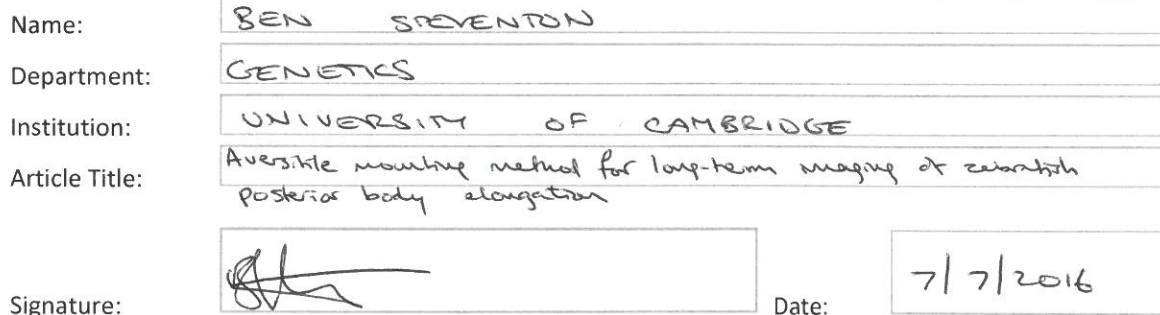 Name: BEN STEVENTON
Department: GENETICS
Institution: UNIVERSITY OF CAMBRIDGE
Article Title: A versatile mounting method for long-term imaging of zebrafish
posterior body elongation
Signature:
Date: 7/7/2016